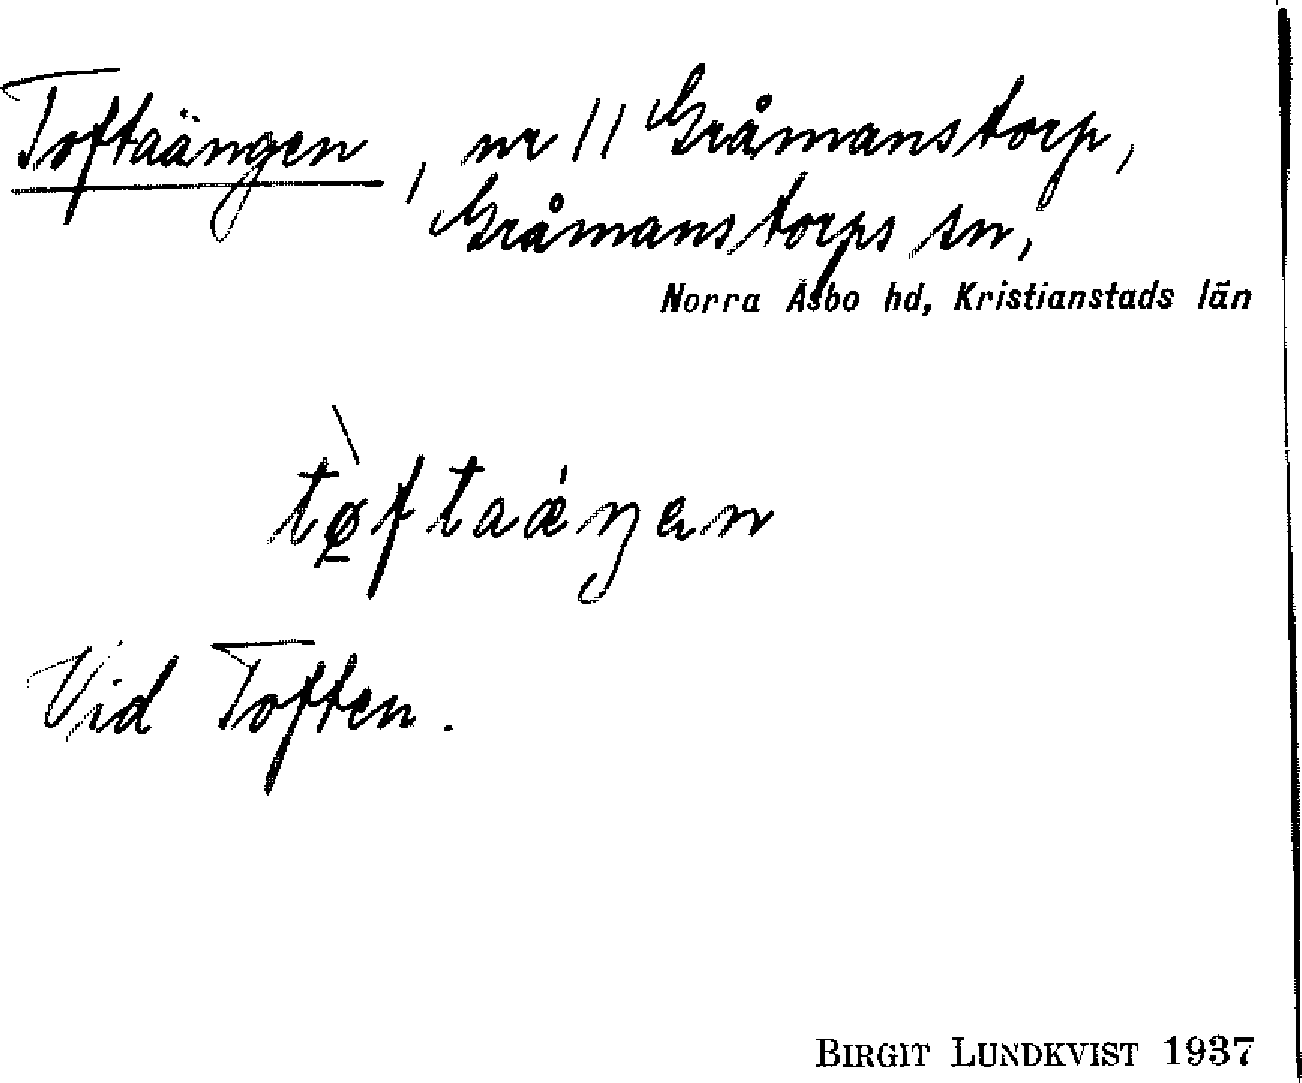 Toftaängen, nr 11 Gråmanstorp,
Gråmanstorps sn,
Norra Åsbo hd, Kristianstads län
tø̱̀ftaǽŋən
Vid Toften.
BIRGIT LUNDKVIST 1937